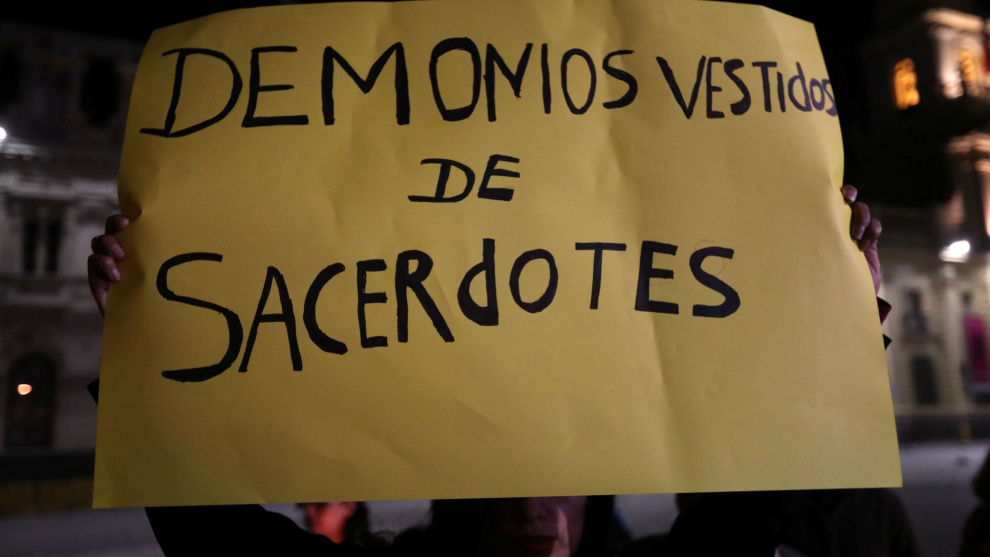 DEMONIOS VESTIdos
DE
SACERdOTES